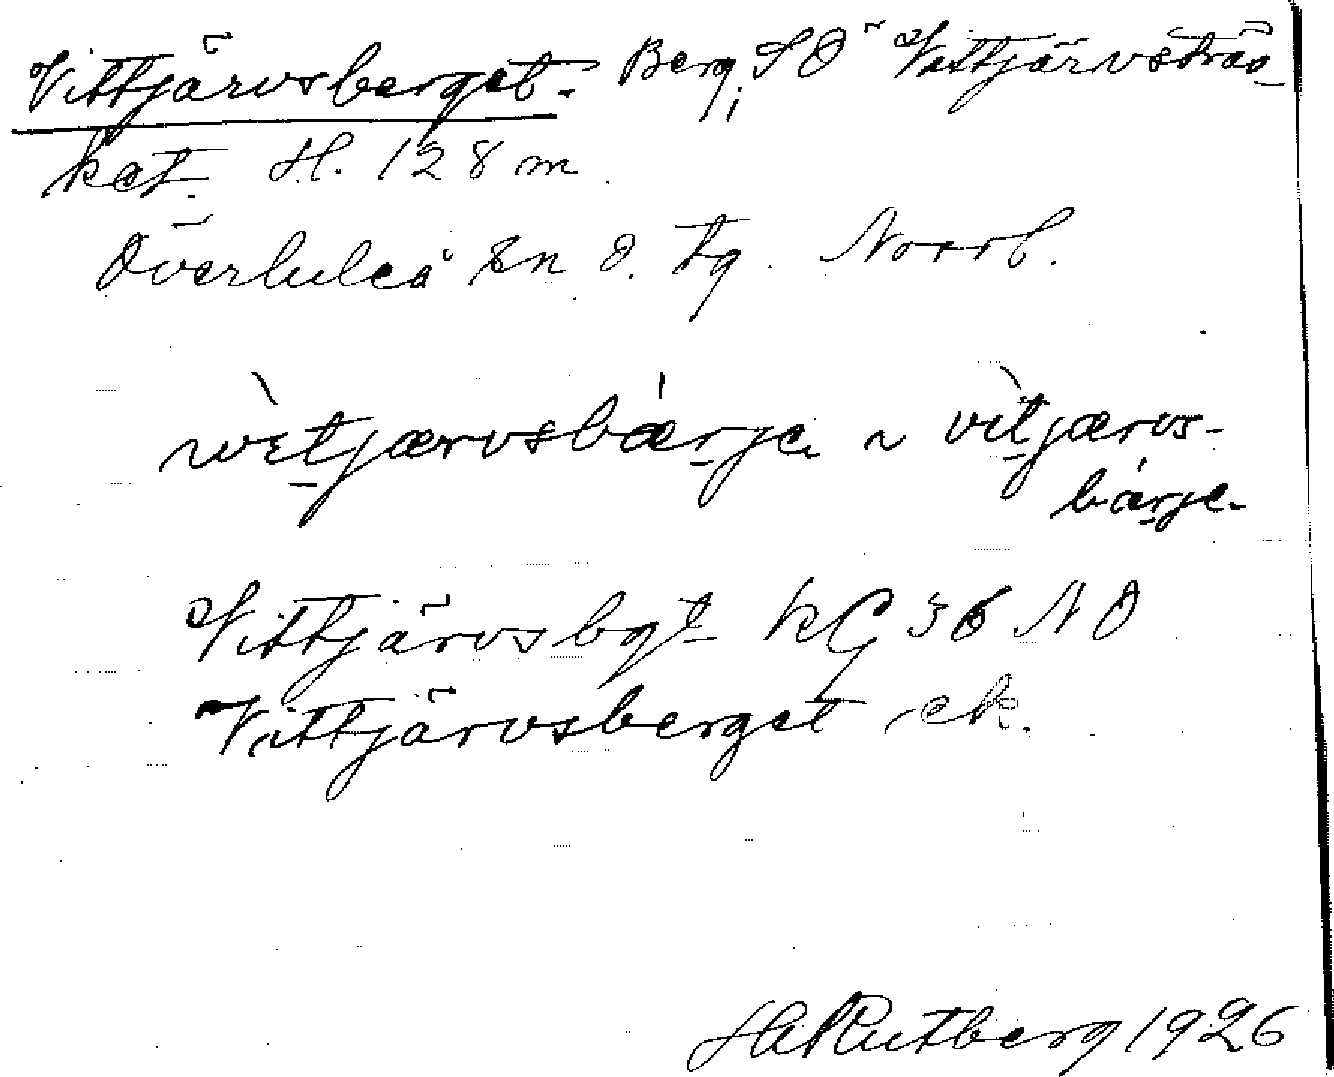 Vittjärvsberget. Berg i SÖ Vittjärvsträs-
ket. H. 128 m.
Överluleå sn Ö. tg. Norrb.
vìtjærvsbærje ~ vìtjærvs-
bærje.
Vittjärvsbgt KG 36 NO
Vittjärvsberget ek.
HARutberg 1926